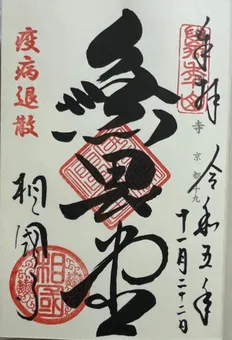 奉拝 令和五年
十一月二十二日
寺 京都十九
無畏堂
疫病退散
相国寺
相國